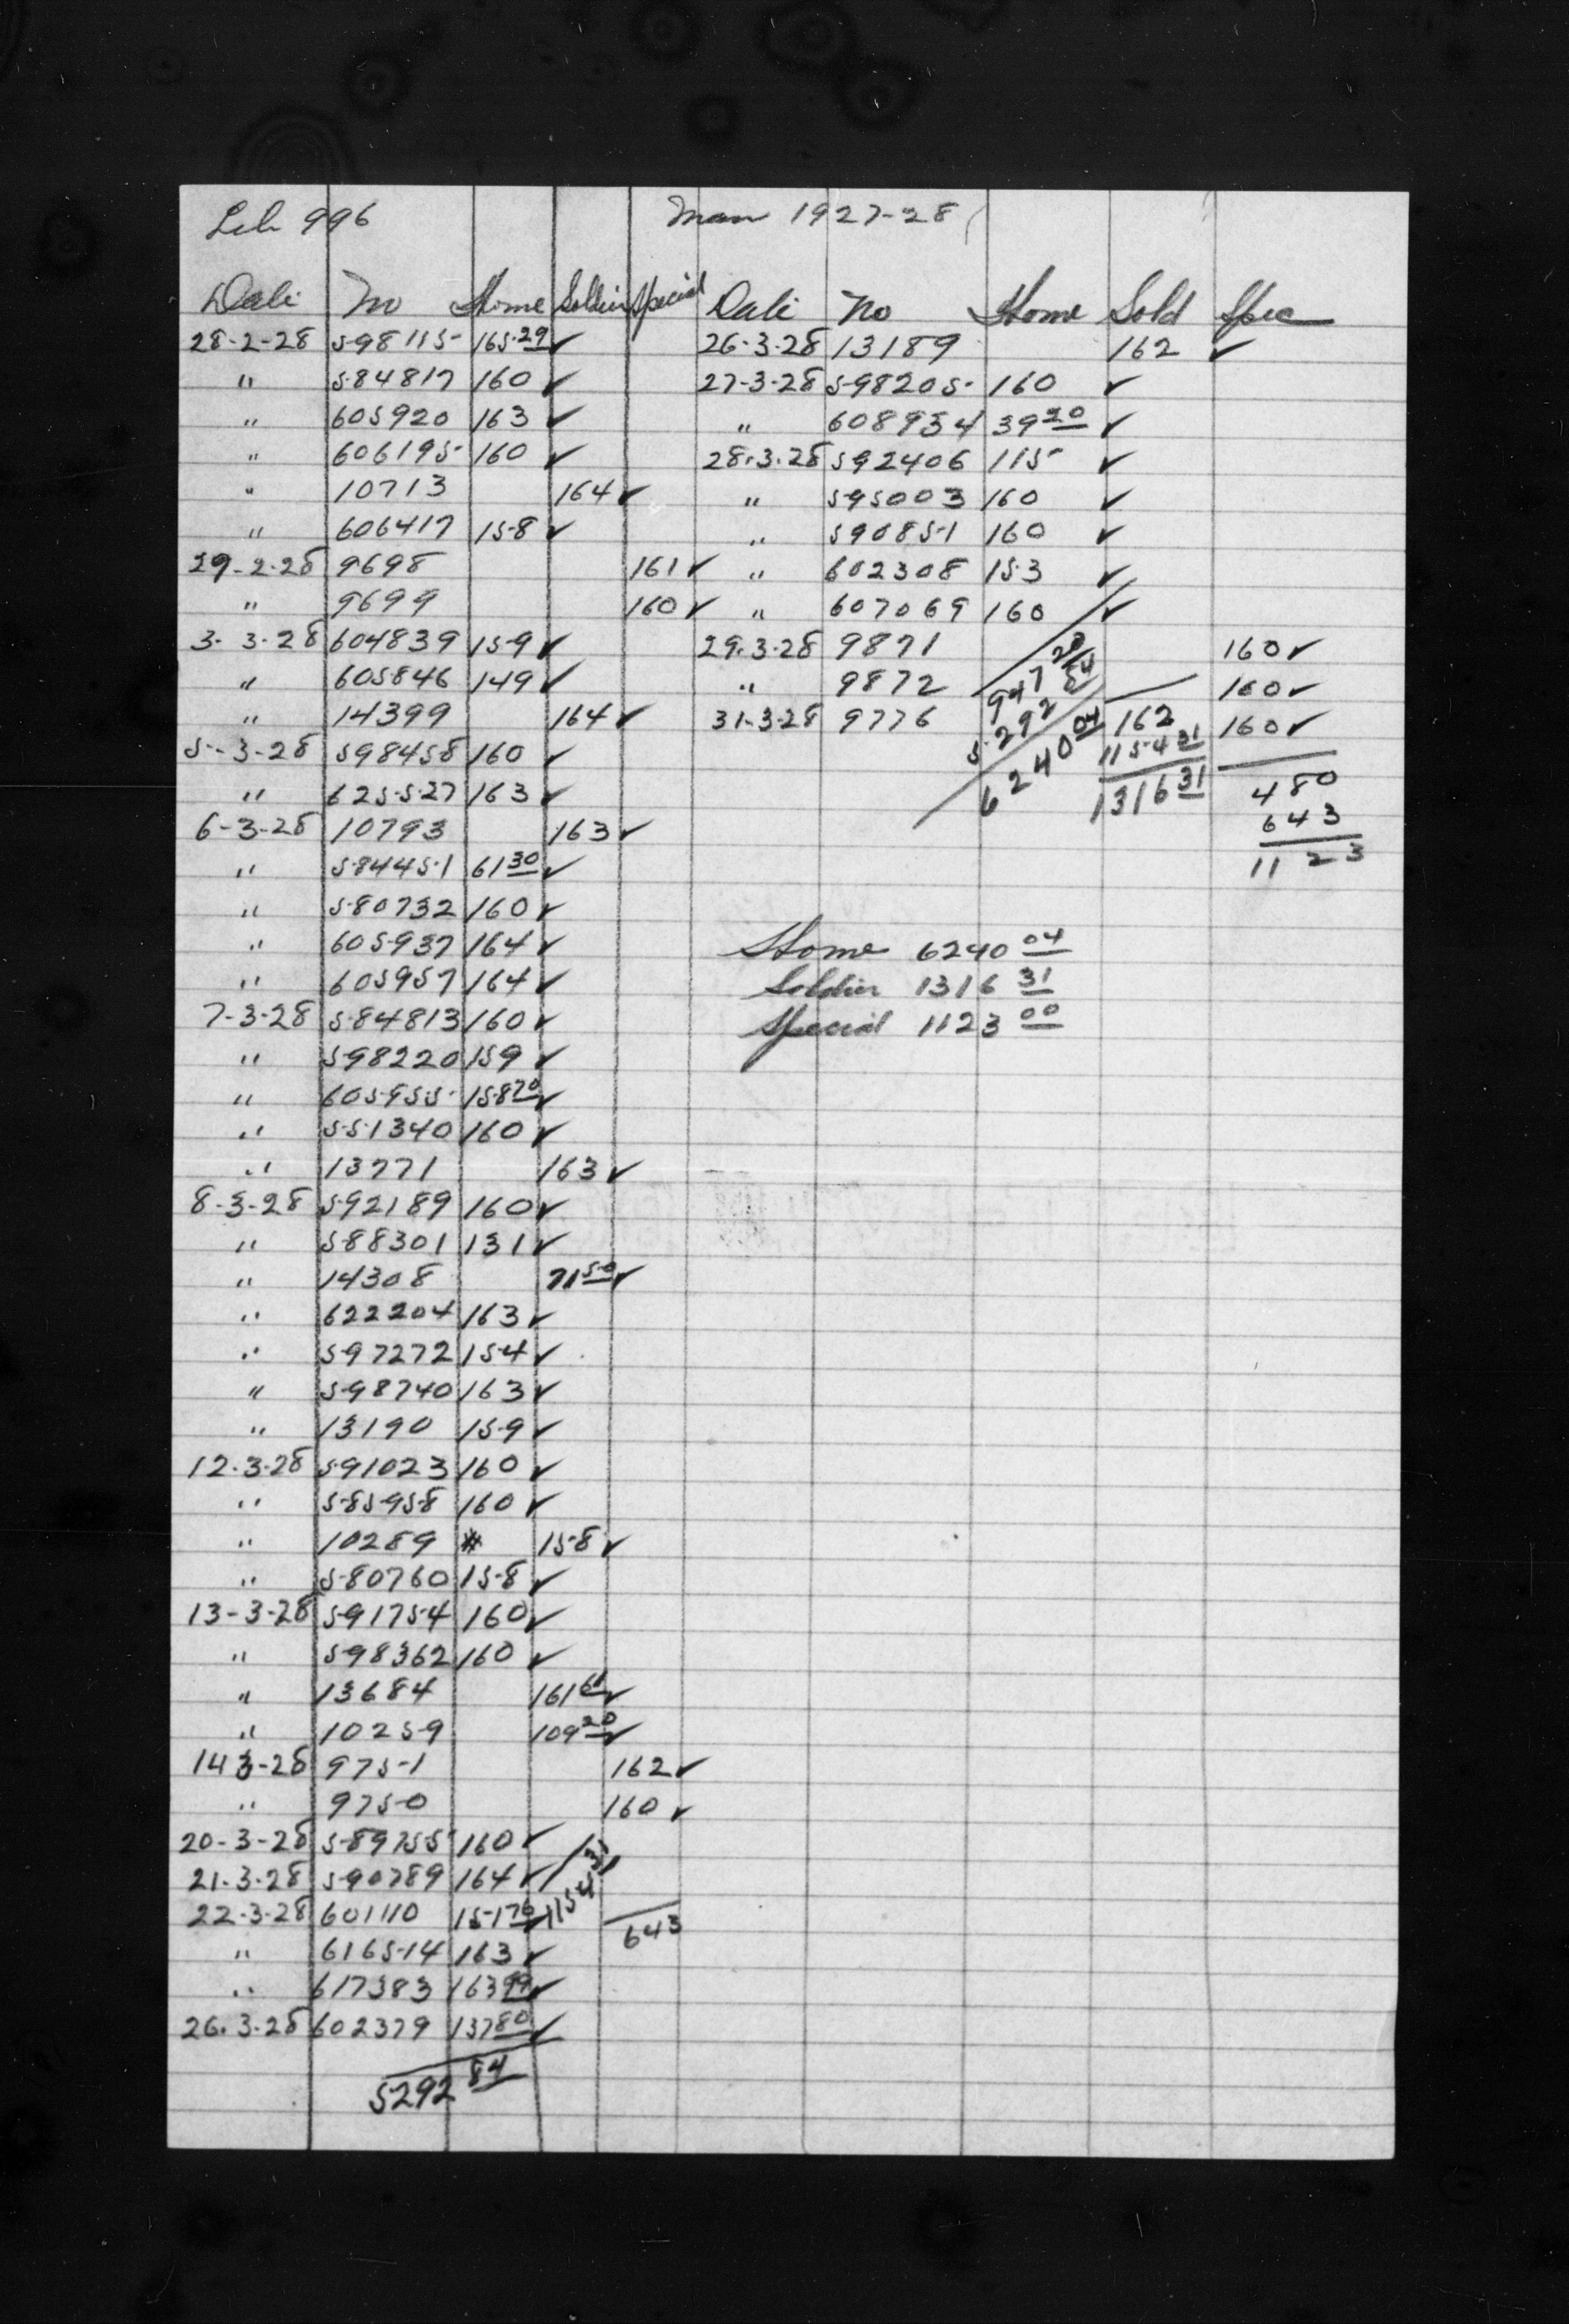 Lib 996 Man 1927-28
Date No Home Soldier Special
28-2-28 598115 165.29 ✓
" 584817 160 ✓
" 605920 163 ✓
" 606195 160 ✓
" 10713 164 ✓
" 606417 158 ✓
29-2-28 9698 161 ✓
" 9699 160 ✓
3-3-28 604839 159 ✓
" 605846 149 ✓
" 14399 164 ✓
5-3-28 598458 160 ✓
" 625527 163 ✓
6-3-28 10793 163 ✓
" 584451 61 30 ✓
" 580732 160 ✓
" 605937 164 ✓
" 605957 164 ✓
7-3-28 584813 160 ✓
" 598220 159 ✓
" 605955 158 70 ✓
" 551340 160 ✓
" 13771 163 ✓
8-3-28 592189 160 ✓
" 588301 131 ✓
" 14308 71 50 ✓
" 622204 163 ✓
" 597272 154 ✓
" 598740 163 ✓
" 13190 159 ✓
12-3-28 591023 160 ✓
" 585958 160 ✓
" 10289 158 ✓
" 580760 158 ✓
13-3-28 591754 160 ✓
" 598362 160 ✓
" 13684 161 61 ✓
" 10259 109 20 ✓
14 3-28 9751 162 ✓
" 9750 160 ✓
20-3-28 589755 160 ✓
21-3-28 590789 164 ✓
22-3-28 601110 151 76 ✓
1154 31
643
" 616514 163 ✓
" 617383 163 99 ✓
26.3-28 602379 137 80 ✓
5292 84
Date No Home Sold Spec
26-3-28 13189 162 ✓
27-3-28 598205 160 ✓
" 608934 39 20 ✓
28-3-28 592406 115 ✓
" 595003 160 ✓
" 590851 160 ✓
" 602308 153 ✓
" 607069 160 ✓
29-3-28 9871 160 ✓
" 9872 160 ✓
31-3-28 9776 160 ✓
947 20
5292 84
6240 04
162
1154 31
1316 31
480
643
1123
Home 6240 04
Soldier 1316 31
Special 1123 00